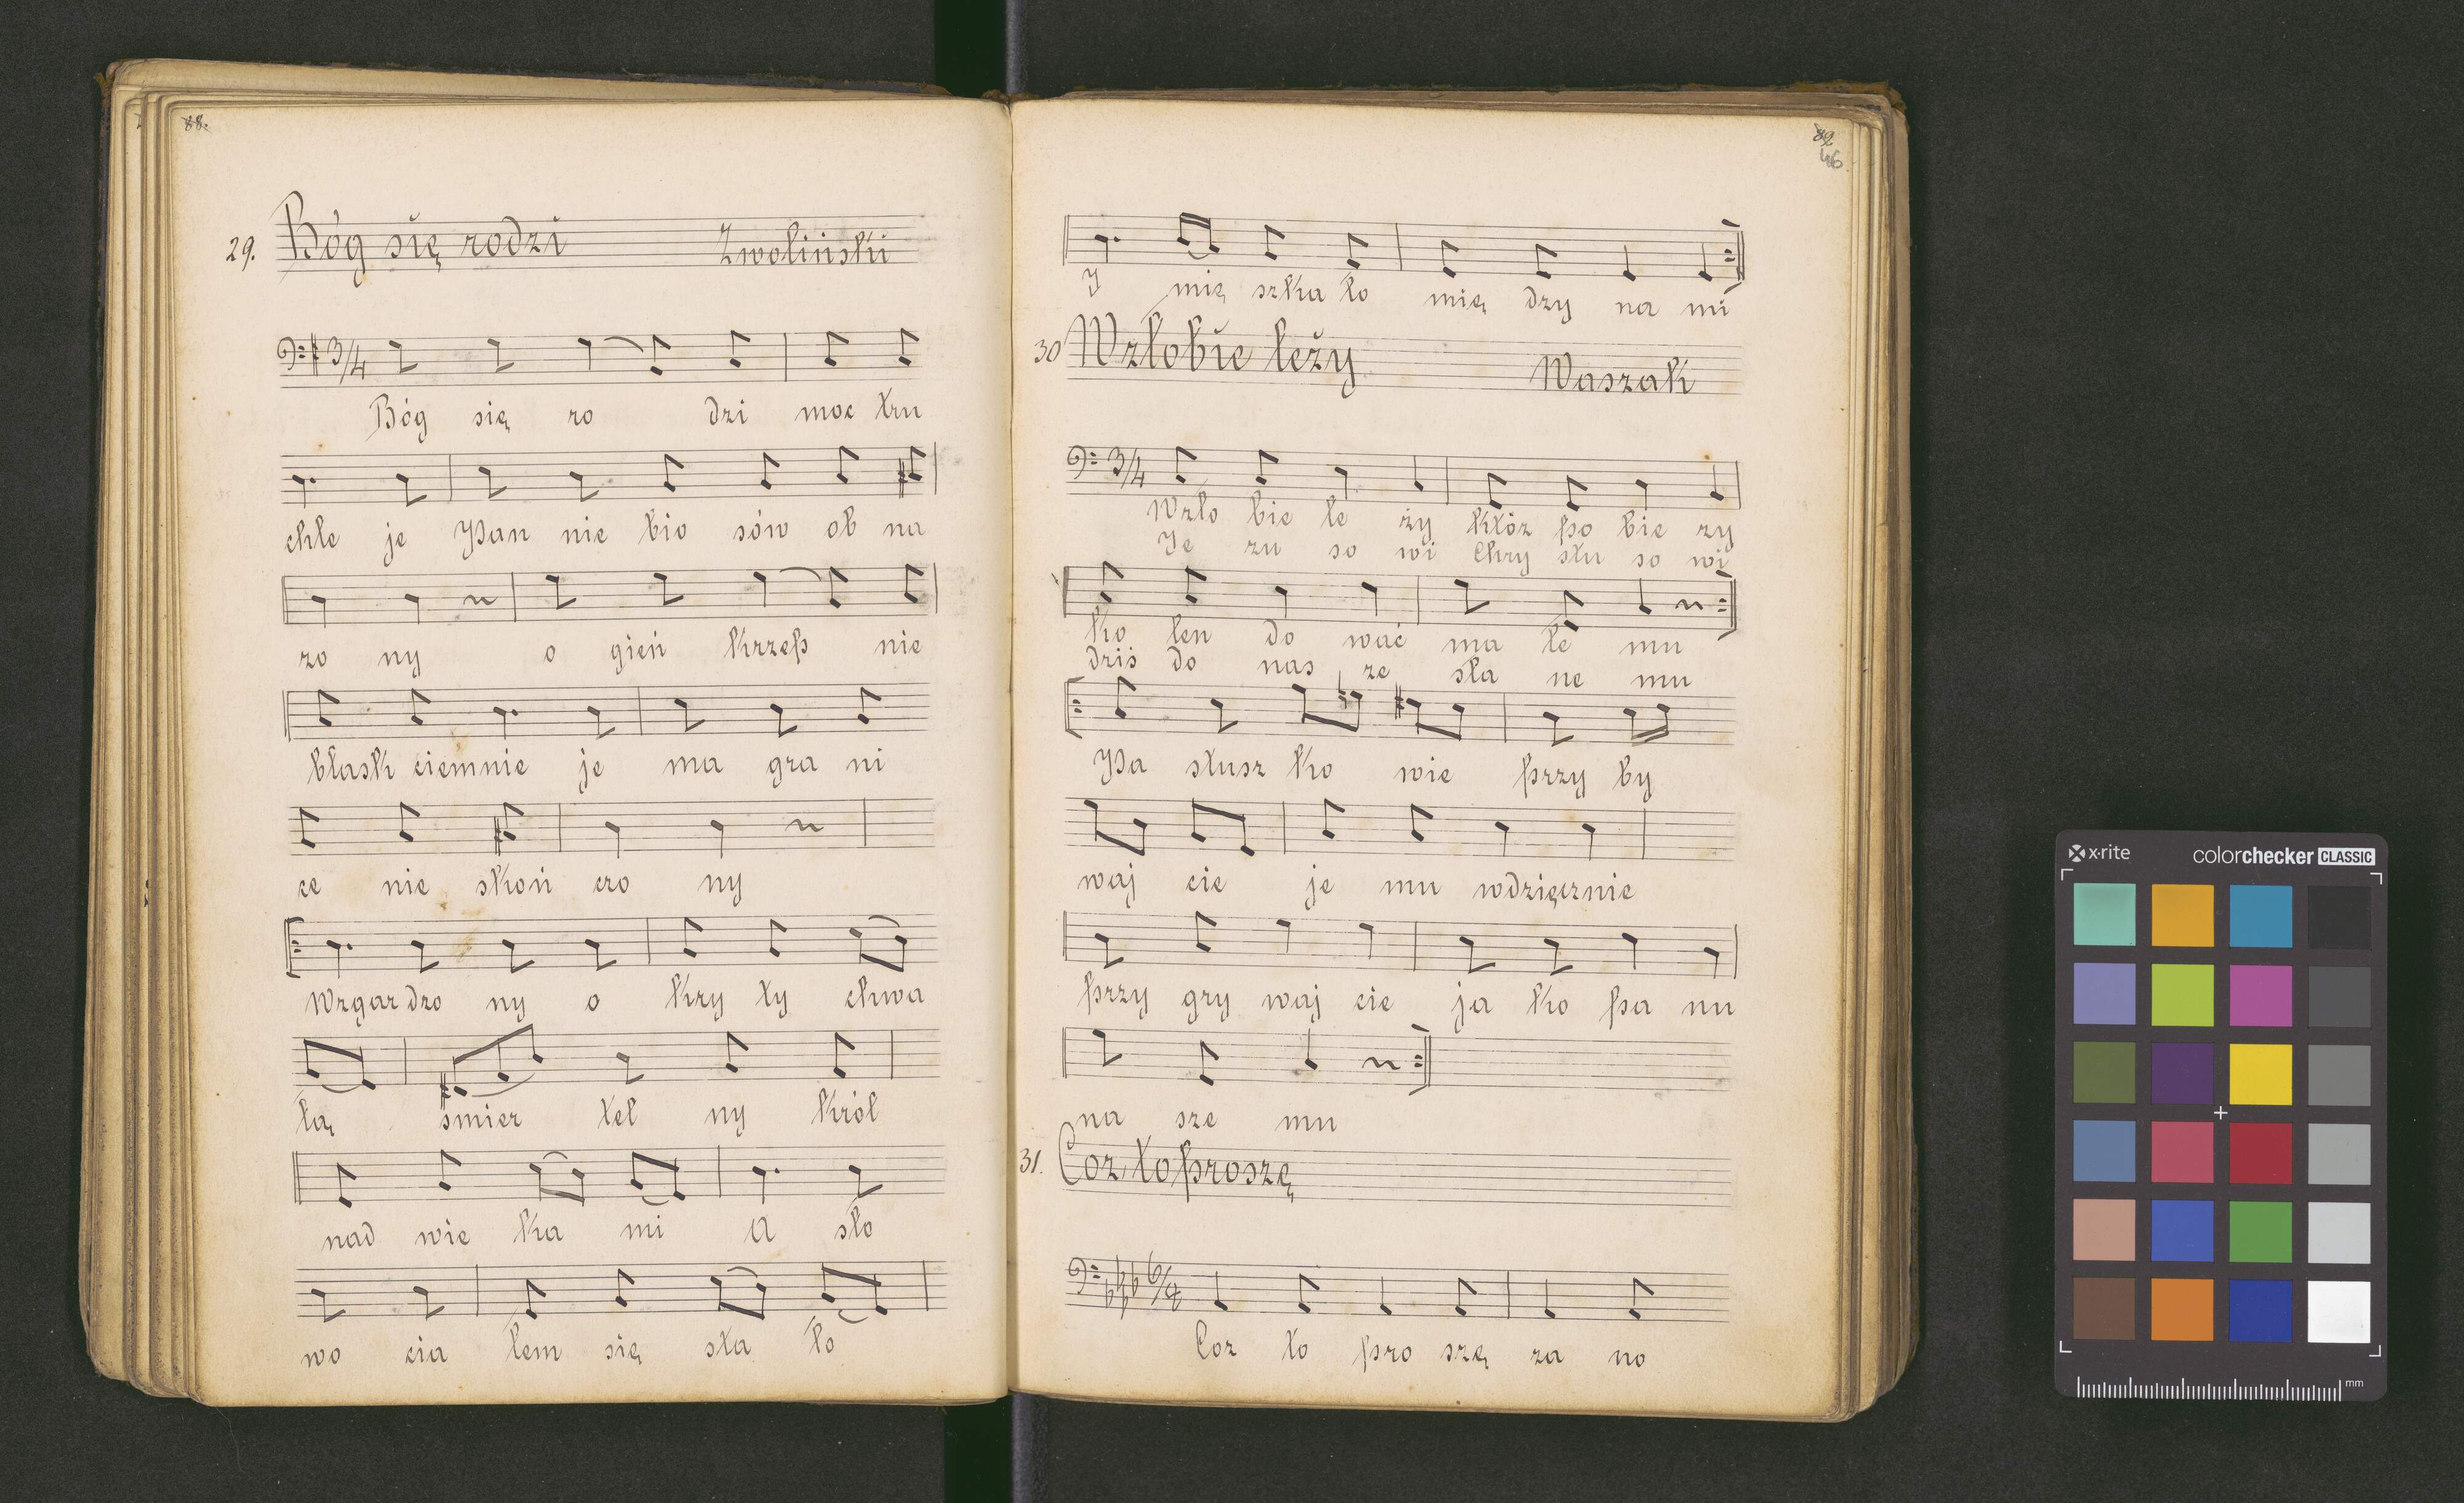 88.
29. Bóg się rodzi Zwoliński
3/4
Bóg się ro dzi moc tru
chle je Pan nie bio sów ob na
żo ny o gień krzep nie
blask ciemnie je ma gra ni
ce nie skoń czo ny
Wzgar dzo ny o kry ty chwa
łą śmier tel ny Król
nad wie ka mi A sło
wo cia łem się sta ło
89
46
Y mię szka ło mię dzy na mi
30 Wżłobie leży Waszak
3/4
Wżło bie le ży któż po bie ży
Je zu so wi Chry stu so wi
ko len do wać ma łe mu
dziś do nas ze sła ne mu
Pa stusz ko wie przy by
waj cie je mu wdzięcznie
przy gry waj cie ja ko pa nu
na sze mu
31. Coż to proszę
6/4
Coż to pro szę za no
x·rite colorchecker CLASSIC
mm